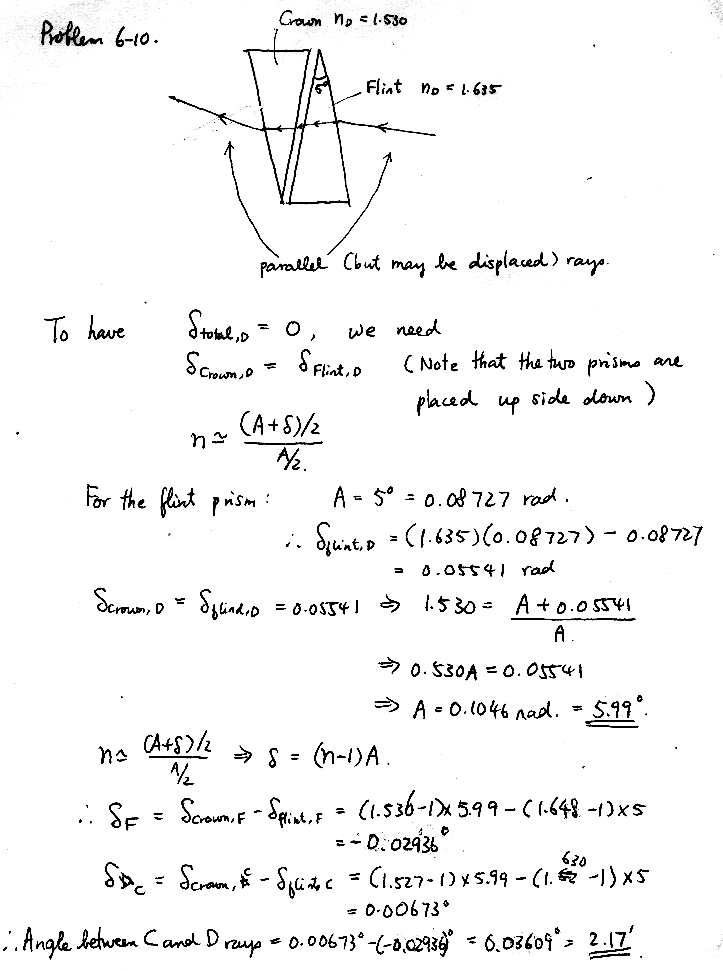 Problem 6-10.
Crown n_D = 1.530
5°
Flint n_D = 1.635
parallel (but may be displaced) rays.
To have δ_total,D = 0, we need
δ_Crown,D = δ_Flint,D (Note that the two prisms are
placed up side down)
n ≃ (A+δ)/2 / A/2.
For the flint prism: A = 5° = 0.08727 rad.
∴ δ_flint,D = (1.635)(0.08727) - 0.08727
= 0.05541 rad
δ_crown,D = δ_flind,D = 0.05541 ⇒ 1.530 = A + 0.05541 / A.
⇒ 0.530A = 0.05541
⇒ A = 0.1046 rad. = 5.99°.
n ≃ (A+δ)/2 / A/2 ⇒ δ = (n-1)A.
∴ δ_F = δ_crown,F - δ_flint,F = (1.536-1)×5.99 - (1.648-1)×5
= -0.02936°
δ_C = δ_crown,C - δ_flint,C = (1.527-1)×5.99 - (1.630-1)×5
= 0.00673°
∴ Angle between C and D rays = 0.00673° - (-0.02936)° = 0.03609° = 2.17'